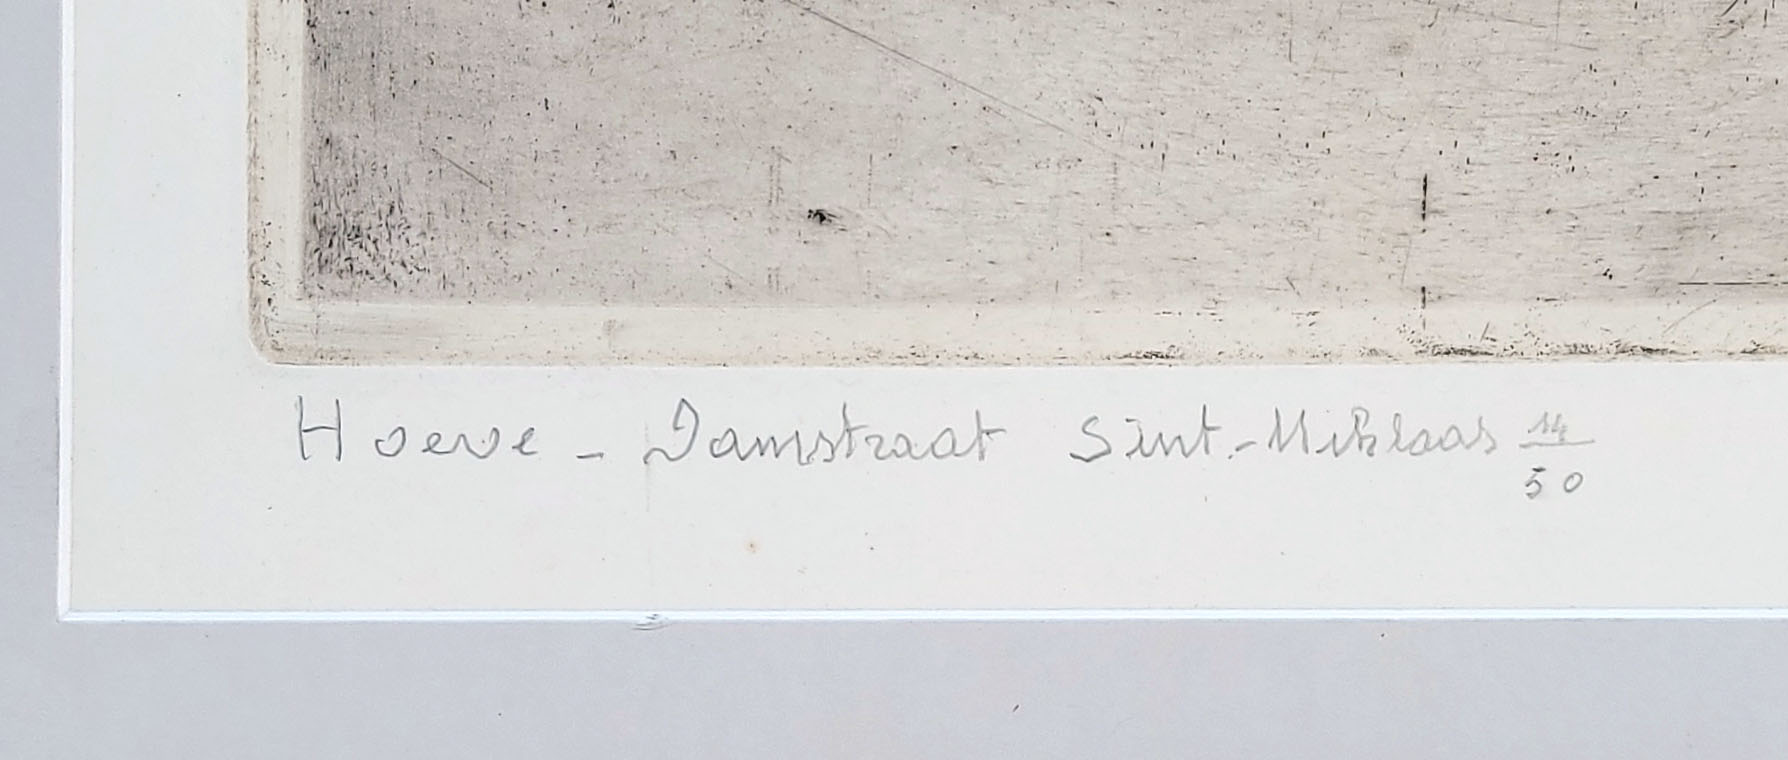 Hoeve - Damstraat Sint-Niklaas 14/50